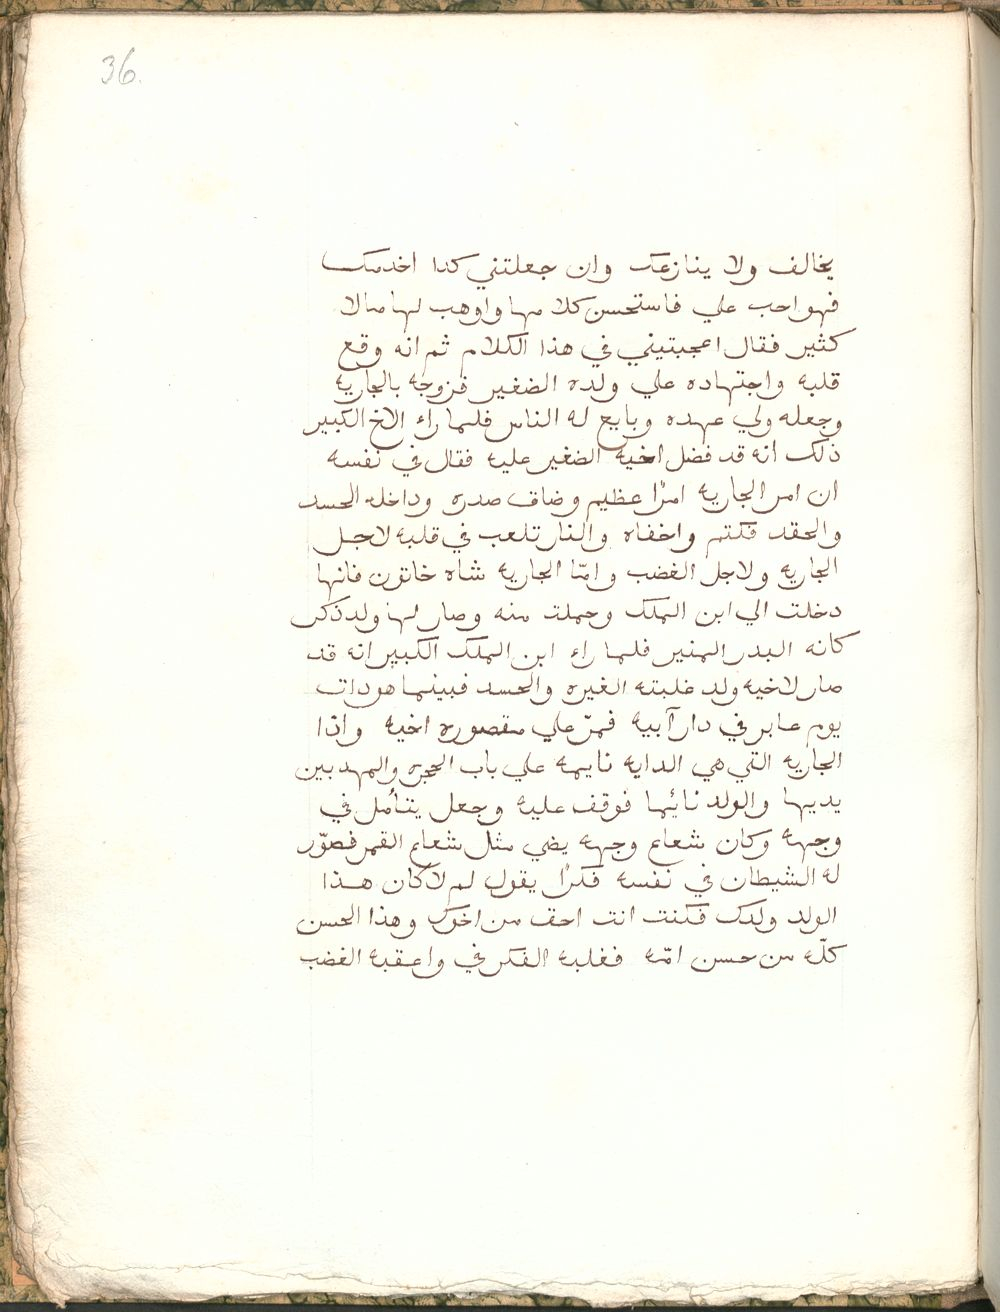 36.
يخالف ولا ينازعك وان جعلتني كدا اخدمك
فهو احب علي فاستحسن كلامها واوهب لها مالا
كثير فقال اعجبتيني في هذا الكلام ثم انه وقع
قلبه واجتهاده علي ولده الضغير فزوجه بالجاريه
وجعله ولي عهده وبايع له الناس فلما راء الاخ الكبير
ذلك انه قد فضل اخيه الضغير عليه فقال في نفسه
ان امر الجاريه امرًا عظيم وضاق صدره وداخله الحسد
والحقد فكتم واخفاه والنار تلعب في قلبه لاجل
الجاريه ولاجل الغضب وامّا الجاريه شاه خاتون فانها
دخلت الي ابن الملك وحملت منه وصار لها ولد ذكر
كانه البدر المنير فلما راء ابن الملك الكبير انه قد
صار لاخيه ولد غلبته الغيره والحسد فبينما هو دات
يوم عابر في دار آبيه فمرّ علي مقصوره اخيه واذا
الجاريه التي هي الدايه نايمه علي باب الحجره والمهد بين
يديها والولد نائِما فوقف عليه وجعل يتأمل في
وجهه وكان شعاع وجهه يضي مثل شعاع القمر فصوّر
له الشيطان في نفسه فكرًا يقول لم لا كان هذا
الولد ولدك فكنت انت احق من اخوك وهذا الحسن
كلّه من حسن امّه فغلبه الفكر في واعقبه الغضب